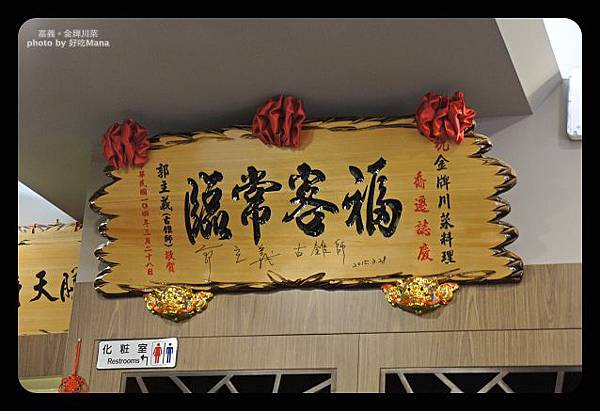 嘉義。金牌川菜
photo by 好吃Mana
金牌川菜料理
喬遷誌慶
福客常臨
郭主義(古錐師)敬賀
中華民國一〇四年三月二十八日
郭主義 古錐師
2015.3.28
天
化粧室
Restrooms